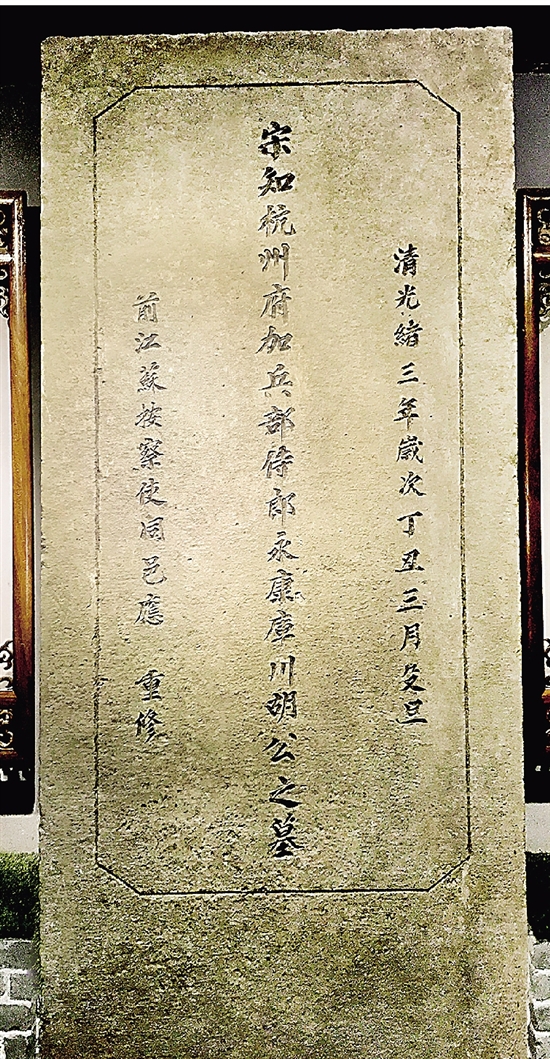 清光緒三年歲次丁丑三月旦
宋知杭州府加兵部侍郎永康庫川胡公之墓
前江蘇按察使同邑應　重修